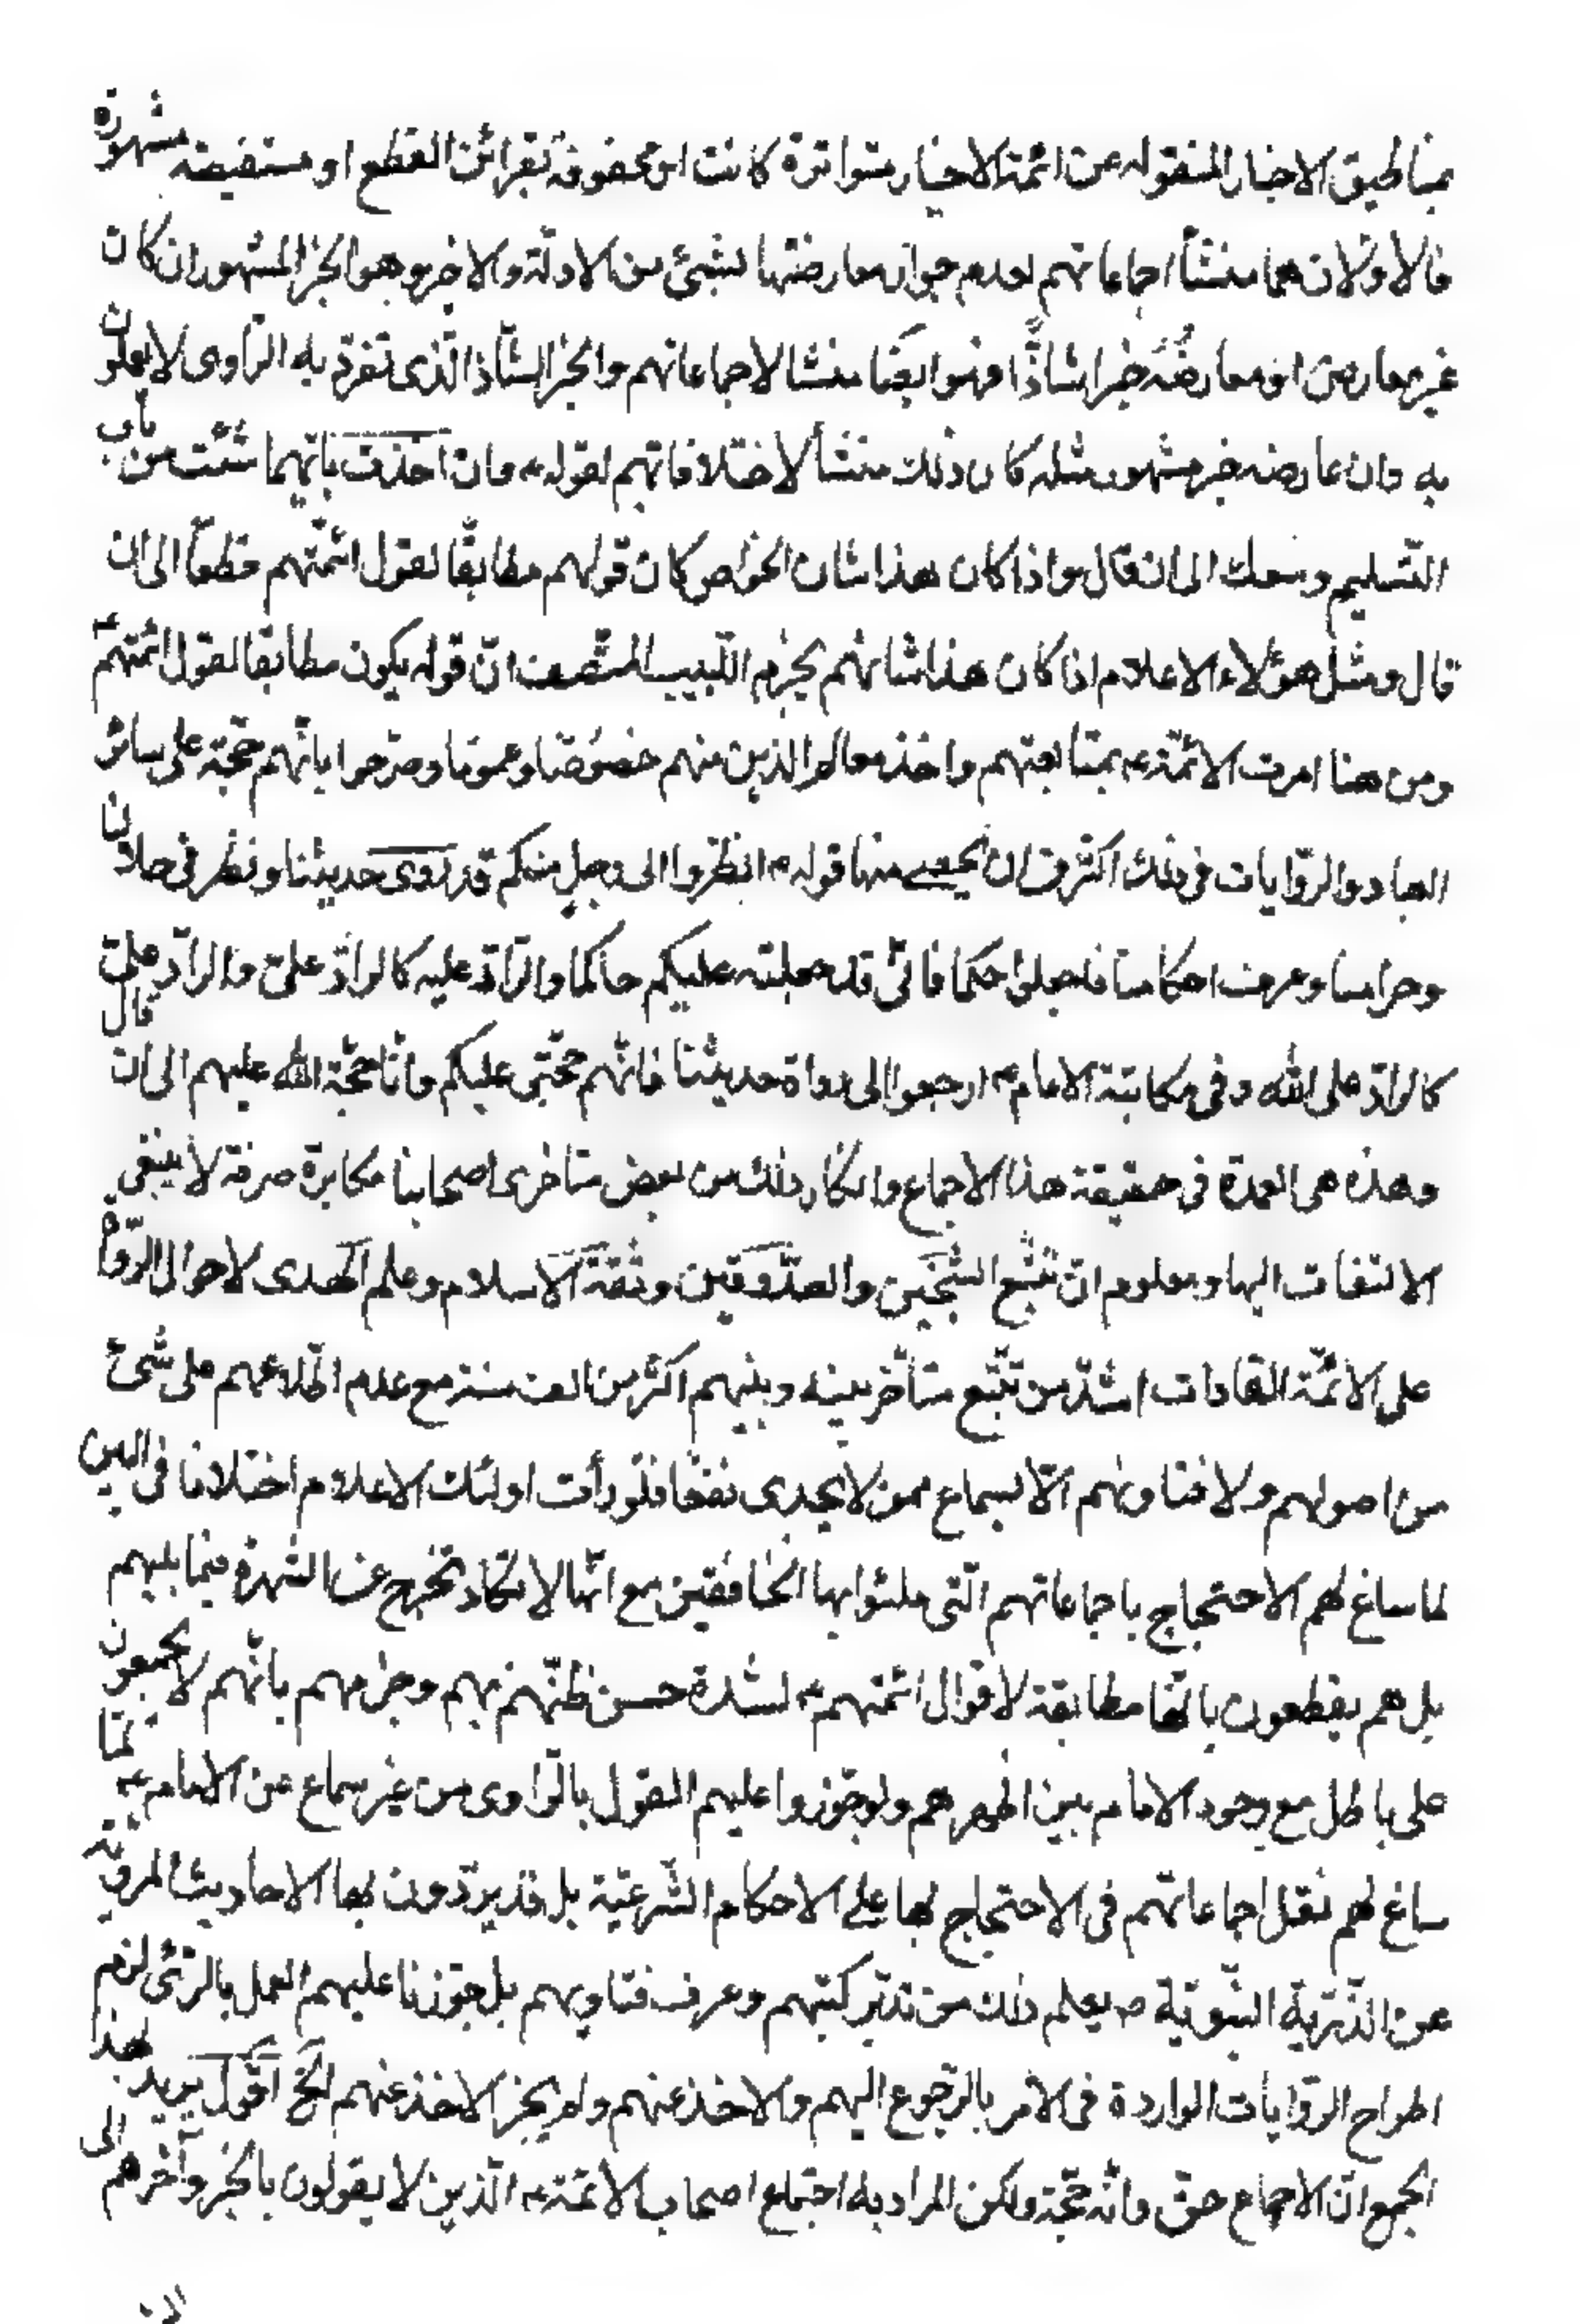 بمناطيق الاخبار المنقوله عن ائمة الاخيار متواترة كانت او محفوفة بقرائن القطع او مستفيضه مشهورة
فالاولان هما منشأ اجماعاتهم لعدم جواز معارضتها بشئ من الادلة والاخير وهو الخبر المشهور ان كان
غير معارض او معارضُه خبرا شاذًّا فهو ايضا منشا لاجماعاتهم والخبر الشاذ الذى تفرد به الراوى لا يعملون
به وان عارضه خبر مشهور مثله كان ذلك منشأ لاختلافاتهم لقوله ع وان اخذت بايهما شئت من باب
التسليم وسعك الى ان قال واذا كان هذا شان الخواص كان قولهم مطابقا لقول ائمتهم قطعا الى ان
قال ومثل هؤلاء الاعلام اذا كان هذا شانهم يجزم اللبيب المنصف ان قوله يكون مطابقا لقول ائمتهم ع
ومن هنا امرت الائمة ع بمتابعتهم واخذ معالم الدين منهم خصوصا وعموما وصرحوا بانهم حجة على سائر
العباد والروايات فى ذلك اكثر من ان تحصى منها قوله ع انظروا الى رجل منكم قد روى حديثنا ونظر فى حلالنا
وحرامنا وعرف احكامنا فاجعلوا حكما فانى قد جعلته عليكم حاكما والراد عليه كالراد علىّ والراد علىّ
كالراد على الله وفى مكاتبة الامام ع ارجعوا الى رواة حديثنا فانهم حجتى عليكم وانا حجة الله عليهم الى ان قال
وهذه هى العمدة فى حقيقة هذا الاجماع وانكار ذلك من بعض متاخرى اصحابنا مكابرة صرفة لا ينبغى
الالتفات اليها ومعلوم ان تتبع الشيخين والصدوقين وثقة الاسلام وعلم الهدى لاحوال الرواة
على الائمة القادات اشد من تتبع متأخر بينه وبينهم اكثر من الف سنة مع عدم اطلاعهم على شئ
من اصولهم ولا فتاويهم الّا بسماع ممن لا يجدى نفعا فلو رأت اولئك الاعلام اختلافا فى البين
لما ساغ لهم الاحتجاج باجماعاتهم التى ملئوا بها الخافقين مع انها لا تكاد تخرج عن الشهرة فيما بينهم
بل هم يقطعون بانها مطابقة لاقوال ائمتهم ع لشدة حسن ظنهم بهم وجزمهم بانهم لا يجمعون
على باطل مع وجود الامام بين اظهرهم ولو جوزوا عليهم القول بالراوى من غير سماع عن الامام ع لما
ساغ لهم نقل اجماعاتهم فى الاحتجاج بها على الاحكام الشرعية بل قد يردون بها الاحاديث المروية
عن الذرية النبوية ص يعلم ذلك من تدبر كتبهم وعرف فتاويهم بل جوزنا عليهم العمل بالرئى لزم
اطراح الروايات الواردة فى الامر بالرجوع اليهم والاخذ عنهم ولم يجز الاخذ عنهم الخ اقول يريد بهذا
الجمع ان الاجماع حق وانه حجة ولكن المراد به اجتماع اصحاب الائمة ع الذين لا يقولون بالخبر وآخرهم الى